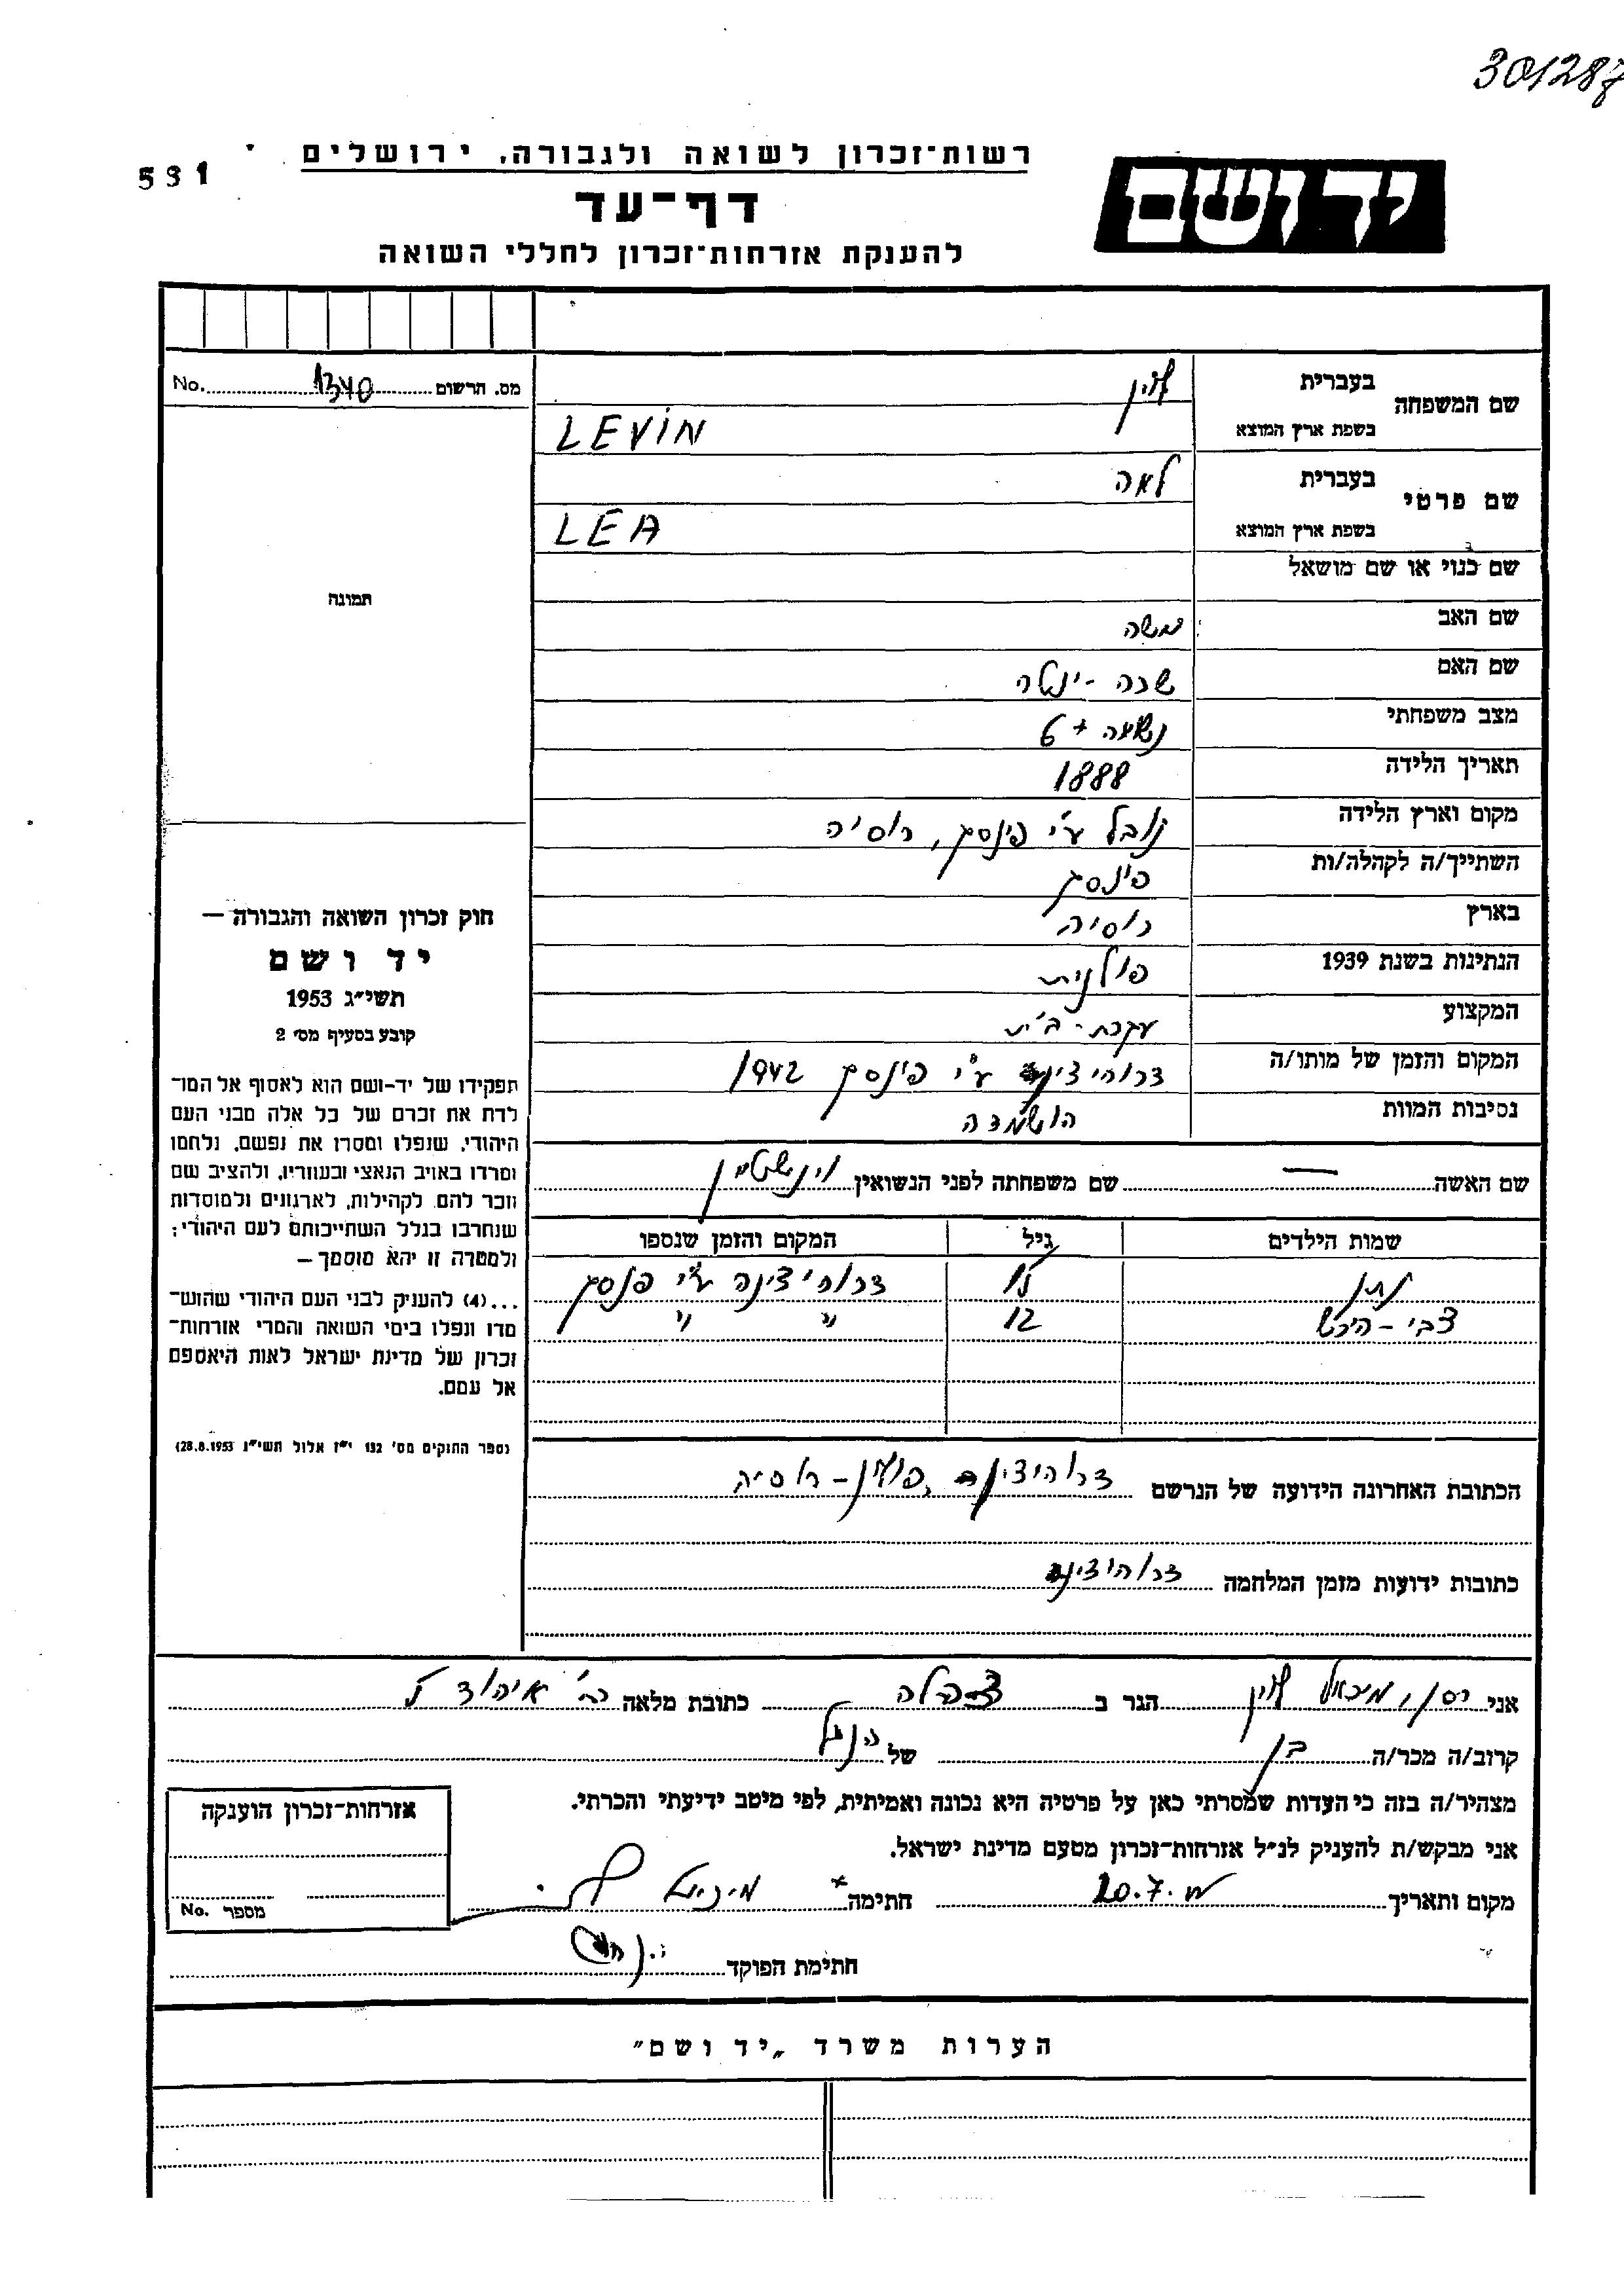 301287
רשות־זכרון לשואה ולגבורה, ירושלים
531
יד ושם
דף־עד
להענקת אזרחות־זכרון לחללי השואה
מס. הרשום 1340 No.
שם המשפחה בעברית לוין
בשפת ארץ המוצא LEVIN
שם פרטי בעברית לאה
בשפת ארץ המוצא LEA
תמונה
שם כנוי או שם מושאל
שם האב משה
שם האם שרה - ינטה
מצב משפחתי נשואה + 6
תאריך הלידה 1888
מקום וארץ הלידה נובל ע"י פינסק, רוסיה
השתייך/ה לקהלה/ות פינסק
בארץ רוסיה
הנתינות בשנת 1939 פולנית
המקצוע עקרת-בית
המקום והזמן של מותו/ה דרוהיצין ע"י פינסק 1942
נסיבות המוות הושמדה
שם האשה — שם משפחתה לפני הנשואין
שמות הילדים גיל המקום והזמן שנספו
נתן 15 דרוהיצינה ע"י פנסק
צבי-הירש 12 " "
הכתובת האחרונה הידועה של הנרשם דרוהיצין, פולין-רוסיה
כתובות ידועות מזמן המלחמה דרוהיצין
חוק זכרון השואה והגבורה —
יד ושם
תשי"ג 1953
קובע בסעיף מס' 2
תפקידו של יד-ושם הוא לאסוף אל המו־
לדת את זכרם של כל אלה מבני העם
היהודי, שנפלו ומסרו את נפשם, נלחמו
ומרדו באויב הנאצי ובעוזריו, ולהציב שם
וזכר להם, לקהילות, לארגונים ולמוסדות
שנחרבו בגלל השתייכותם לעם היהודי;
ולמטרה זו יהא מוסמך—
...(4) להעניק לבני העם היהודי שהוש־
מדו ונפלו בימי השואה והמרי אזרחות־
זכרון של מדינת ישראל לאות היאספם
אל עמם.
(ספר החוקים מס' 132 י"ז אלול תשי"ג 28.8.1953)
אני רס"ן מיכאל לוין הגר ב צהלה כתובת מלאה רח' איהוד 5
קרוב/ה מכר/ה בן של הנ"ל
מצהיר/ה בזה כי העדות שמסרתי כאן על פרטיה היא נכונה ואמיתית, לפי מיטב ידיעתי והכרתי.
אני מבקש/ת להעניק לנ"ל אזרחות־זכרון מטעם מדינת ישראל.
מקום ותאריך 20.7 חתימה
חתימת הפוקד
אזרחות־זכרון הוענקה
מספר No.
הערות משרד „יד ושם"